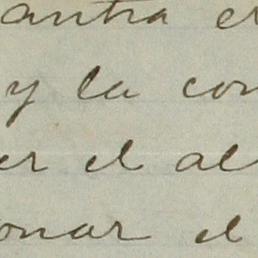 antra e
y la con
er el al
onar el